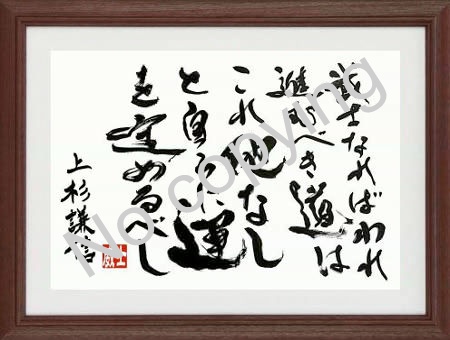 武士なればわれ
進むべき道は
これ他なし
と自らに運
を定めるべし
上杉謙信
No copying